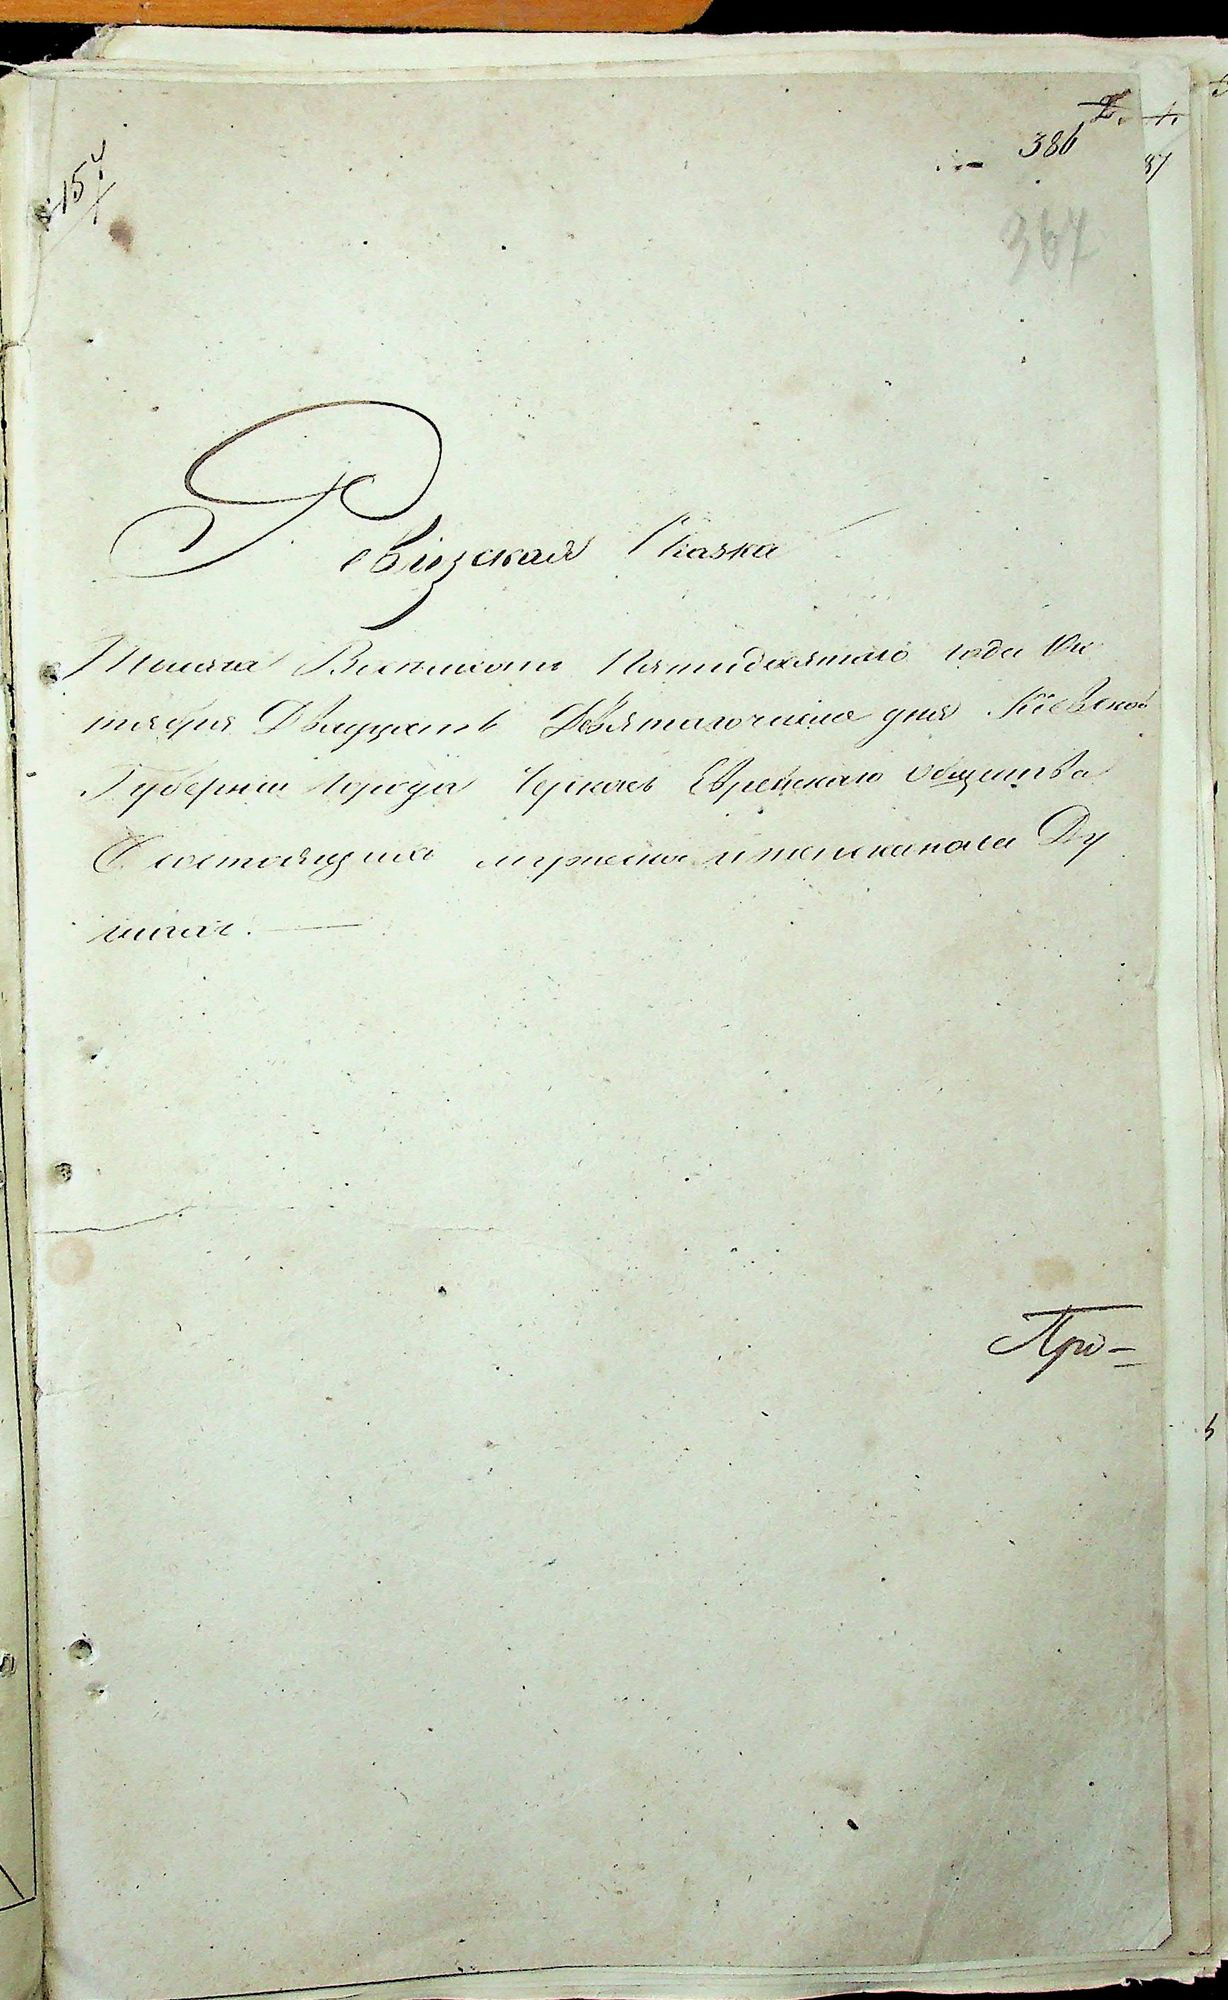 386
87
367
157
Ревизская Сказка
Тысяча Восемьсот Пятидесятаго года Ок
тября Двадцать Девятагочисла дня Киевской
Губернии города Черкасъ Еврейскаго общества
О состоящихъ мужеска иженскапола Ду
шахъ.
При-